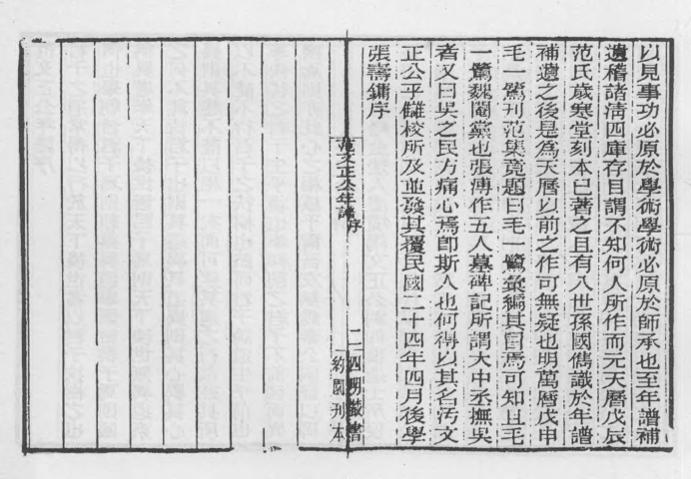 以見事功必原於學術學術必原於師承也至年譜補
遺稽諸淸四庫存目謂不知何人所作而元天曆戊辰
范氏歲寒堂刻本已著之且有八世孫國儁識於年譜
補遺之後是爲天曆以前之作可無疑也明萬曆戊申
毛一鷺刊范集竟題曰毛一鷺彙編其目焉可知且毛
一鷺魏閹黨也張溥作五人墓碑記所謂大中丞撫吳
者又曰吳之民方痛心焉卽斯人也何得以其名汚文
正公乎讎校所及並發其覆民國二十四年四月後學
張壽鏞序
范文正公年譜 序
二 四明叢書
約園刊本